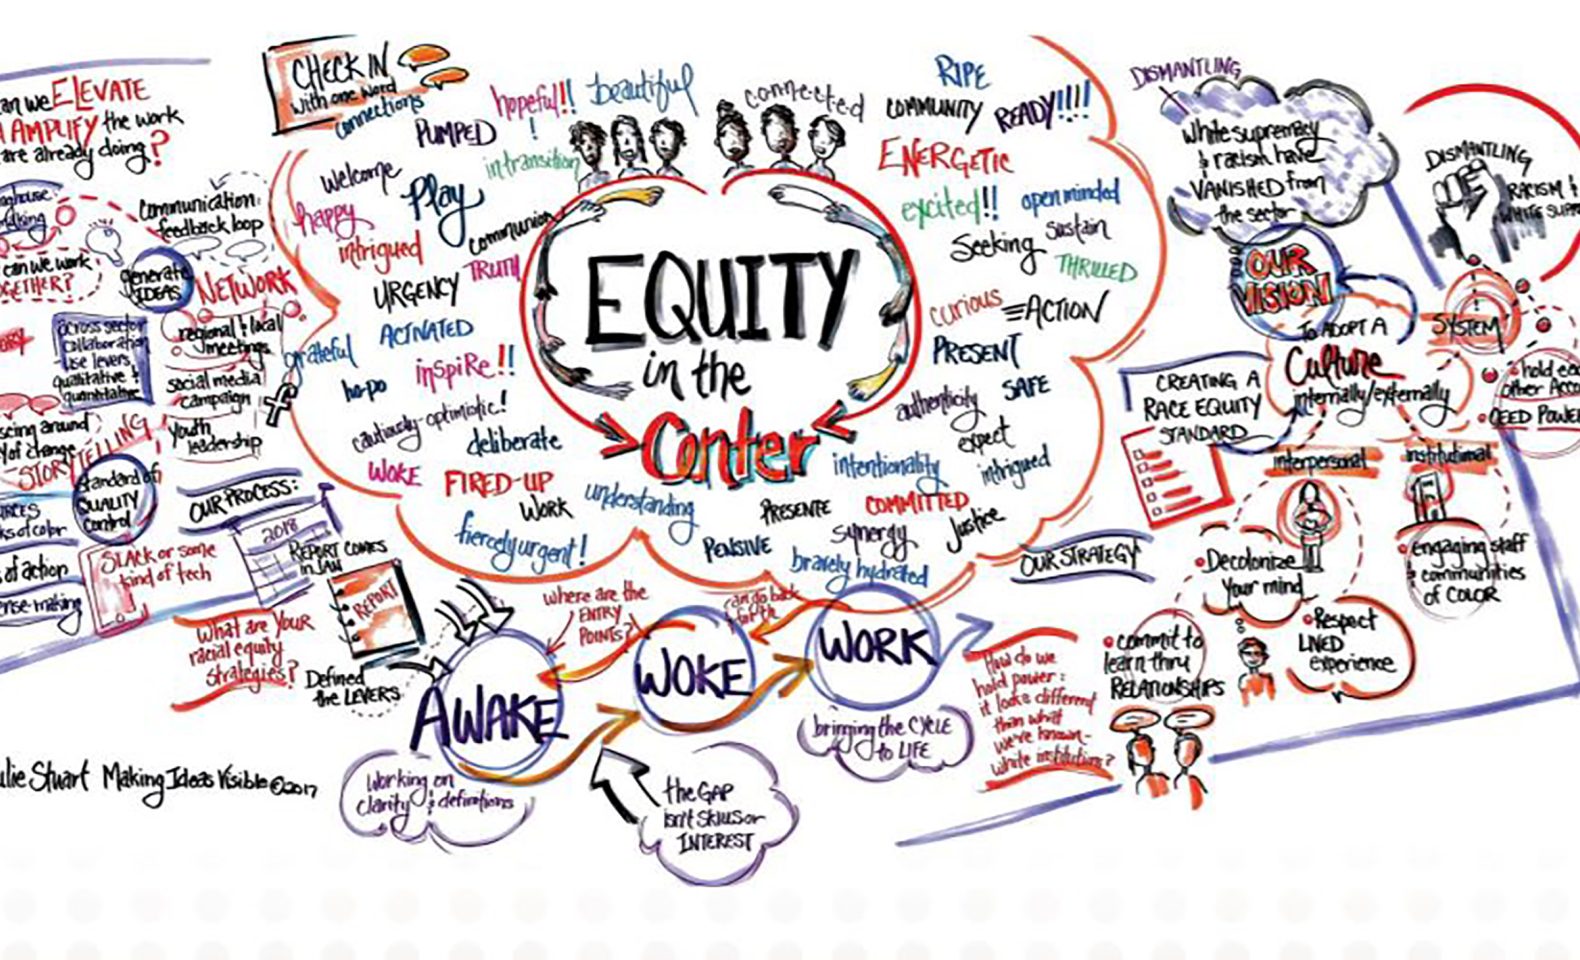 an we ELEVATE
AMPLIFY the work
are already doing?
Communication:
feedback loop
can we work
generate
IDEAS
NETWORK
across sector
collaboration
use levers
qualitative &
quantitative
regional & local
meetings
social media
campaign
Youth
leadership
scing around
of change
STORYTELLING
Standard of
QUALITY
Control
OUR PROCESS:
2018
REPORT COMES
IN JAN
REPORT
SLACK or some
kind of tech
ks of color
of action
nse-making
What are YOUR
racial equity
strategies?
Defined
the LEVERS
ulie Stuart Making Ideas Visible © 2017
CHECK IN
with one word
connections
PUMPED
hopeful!!
beautiful
connected
in transition
Welcome
Play
happy
intrigued
communion
TRUTH
URGENCY
ACTIVATED
grateful
inspire!!
cautiously-optimistic!
deliberate
WOKE
FIRED-UP
WORK
understanding
fiercely urgent!
EQUITY
in the
Center
RIPE
COMMUNITY
READY!!!!
ENERGETIC
excited!!
open minded
Seeking
Sustain
THRILLED
curious
ACTION
PRESENT
SAFE
authenticity
expect
intentionality
intrigued
PRESENTE
COMMITTED
synergy
Justice
PENSIVE
bravely hydrated
where are the
ENTRY
POINTS?
can go back
forth
AWAKE
WOKE
WORK
working on
clarity & definitions
the GAP
isn't SKILLS or
INTEREST
bringing the CYCLE
to LIFE
How do we
hold power:
it looks different
than what
we've known-
white institutions?
OUR STRATEGY
DISMANTLING
White supremacy
& racism have
VANISHED from
the sector
OUR
VISION
TO ADOPT A
Culture
internally/externally
CREATING A
RACE EQUITY
STANDARD
DISMANTLING
RACISM &
WHITE SUPR
SYSTEM
hold eac
other Acco
CEED POWER
interpersonal
institutional
Decolonize
Your mind
engaging staff
& communities
of COLOR
Respect
LIVED
experience
commit to
learn thru
RELATIONSHIPS